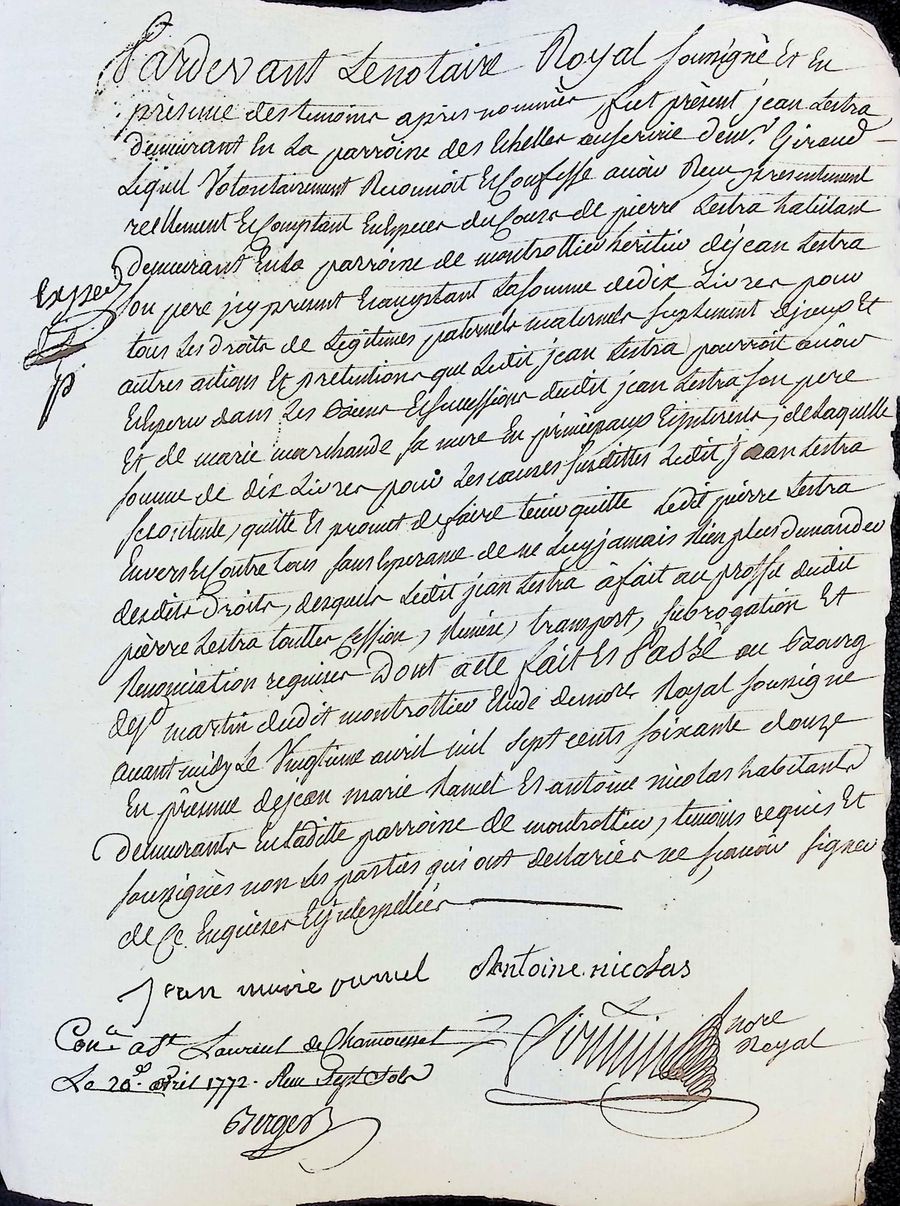 Pardevant Le notaire Royal soussigné Et En
présence des temoins après nommés fut présent jean Lestra
demeurant En La parroisse des Echelles au service de mr. Giraud
Lequel Volontairement Reconnoit Et Confesse avoir Reçu presentement
reellement Et Comptant En Especes du Cours de pierre Lestra habitant
demeurant En La parroisse de montrottier héritier de jean Lestra
son pere icy present Et acceptant La somme de dix Livres pour
tous Les Droits de Légitimes paternels maternels suplement d'iceux Et
autres actions Et pretentions que Ledit jean Lestra pourroit avoir
Et Esperer dans Les Biens Et successions dudit jean Lestra son pere
Et de marie marchande sa mere En principaux Et interets, de Laquelle
somme de dix Livres pour Les causes susdittes Ledit jean Lestra
se contente, quitte Et promet de faire tenir quitte Ledit pierre Lestra
Envers Et Contre tous sans Esperance de ne Luy jamais Rien plus demander
desdits Droits, desquels Ledit jean Lestra à fait au proffit dudit
pierre Lestra touttes Cession, Remise, transport, subrogation Et
Renonciation requises Dont acte fait Et Passé au Bourg
de st martin dudit montrottier Etude de nore Royal soussigné
avant midy Le Vingtieme avril mil sept cents soixante douze
En présence de jean marie Ramel Et antoine nicolas habitants
demeurants En Laditte parroisse de montrottier, temoins requis Et
soussignés non Les parties qui ont declarées ne sçavoir signer
de Ce Enquises Et interpellées
Exped
p
jean marie ramel Antoine nicolas
nore
Royal
Conlé a st Laurent de Chamousset
Le 20 avril 1772. Reçu Sept Sols
Berger